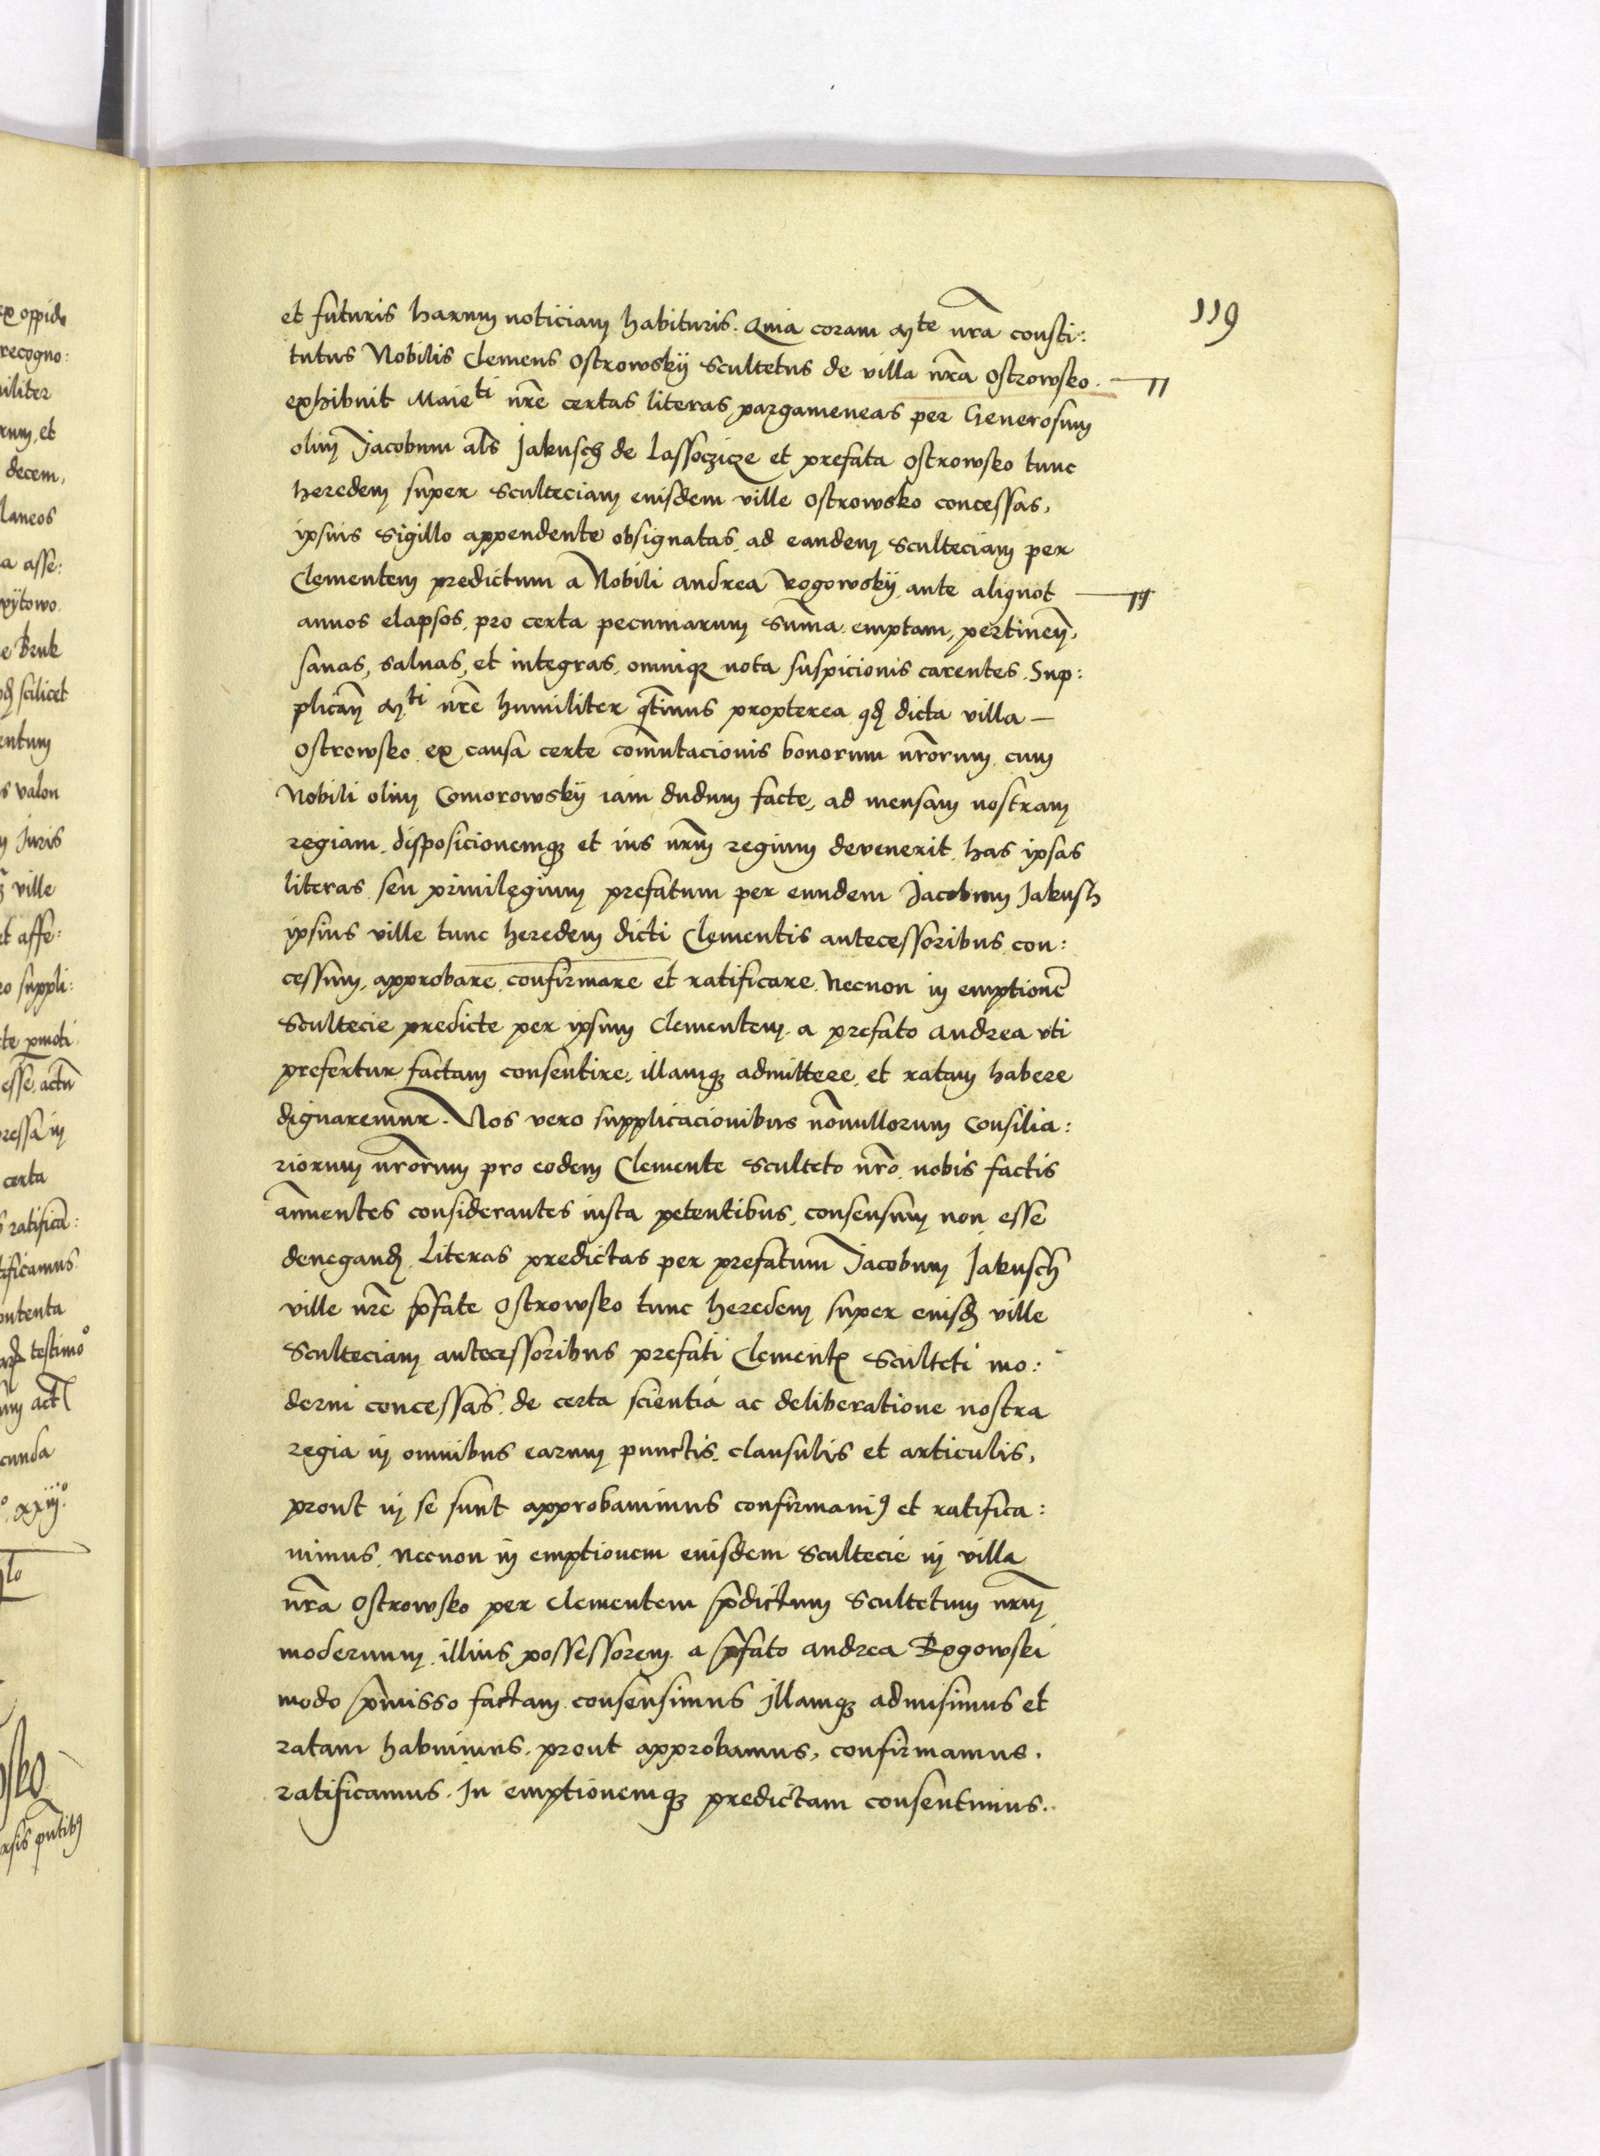 119
et futuris harum noticiam habituris. Quia coram Mte nra consti:
tutus Nobilis Clemens Ostrowskÿ Scultetus de villa nra Ostrowsko.
exhibuit Maieti nre certas literas pargameneas per Generosum
olim Jacobum als Jakusch de Lassoczicze et prefata Ostrowsko tunc
heredem super Sculteciam eiusdem ville Ostrowsko concessas,
ipsius Sigillo appendente obsignatas, ad eandem Sculteciam per
Clementem predictum a Nobili Andrea Rogowskÿ ante aliquot
annos elapsos, pro certa pecuniarum Suma emptam, pertinen,
sanas, saluas, et integras, omnique nota suspicionis carentes. Sup:
plican Mti nre humiliter qtinus propterea qd dicta villa —
Ostrowsko ex causa certe comutacionis bonorum nrorum cum
Nobili olim Comorowskÿ iam dudum facte, ad mensam nostram
regiam, disposicionemque et ius nrm regium devenerit, has ipsas
literas seu priuilegium prefatum per eundem Jacobum Jakusch
ipsius ville tunc heredem dicti Clementis antecessoribus con:
cessum, approbare, confirmare et ratificare, Necnon in emptione
Scultecie predicte per ipsum Clementem a prefato Andrea uti
prefertur factam consentire, illamque admittere et ratam habere
dignaremur. Nos vero supplicacionibus nonullorum Consilia:
riorum nrorum pro eodem Clemente Sculteto nro nobis factis
anuentes considerantes iusta petentibus, consensum non esse
denegand, Literas predictas per prefatum Jacobum Jakusch
ville nre pfate Ostrowsko tunc heredem super eiusd ville
Sculteciam antecessoribus prefati Clement Sculteti mo:
derni concessas, de certa scientia ac deliberatione nostra
regia in omnibus earum punctis, clausulis et articulis,
prout in se sunt approbauimus confirmauim9 et ratifica:
uimus, Necnon in emptionem eiusdem Scultecie in villa
nra Ostrowsko per Clementem pdictum Scultetum nrm
modernum, illius possessorem a pfato Andrea Rogowski
modo pmisso factam consensimus Illamque admisimus et
ratam habuimus, prout approbamus, confirmamus,
ratificamus, In emptionemque predictam consentimus.